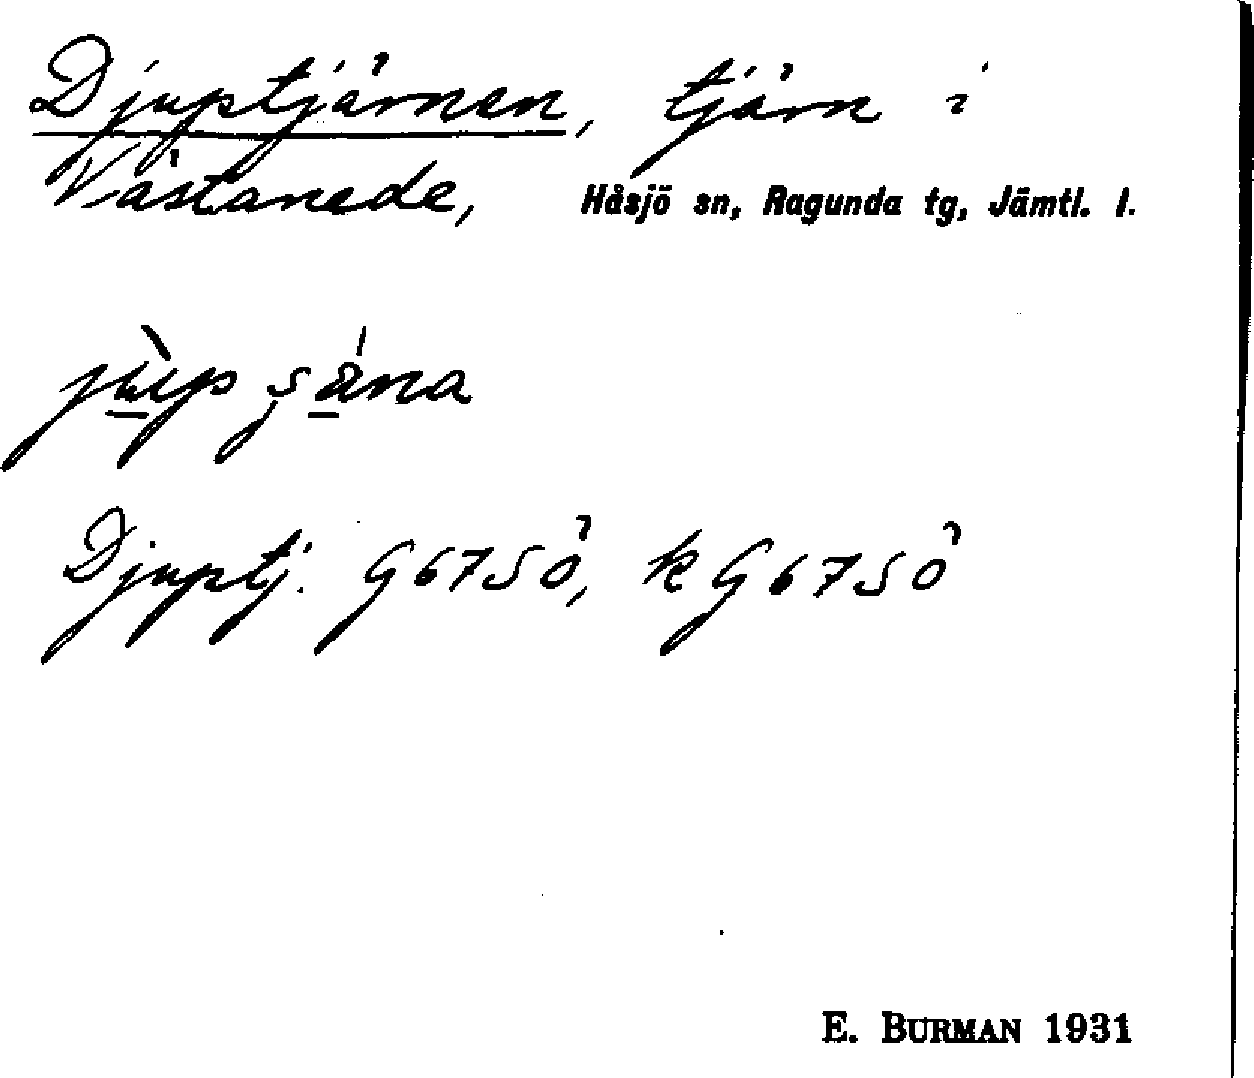 Djuptjärnen, tjärn i
Västanede, Håsjö sn, Ragunda tg, Jämtl. l.
Djuptj. G67SÖ, k G67SÖ
E. BURMAN 1931